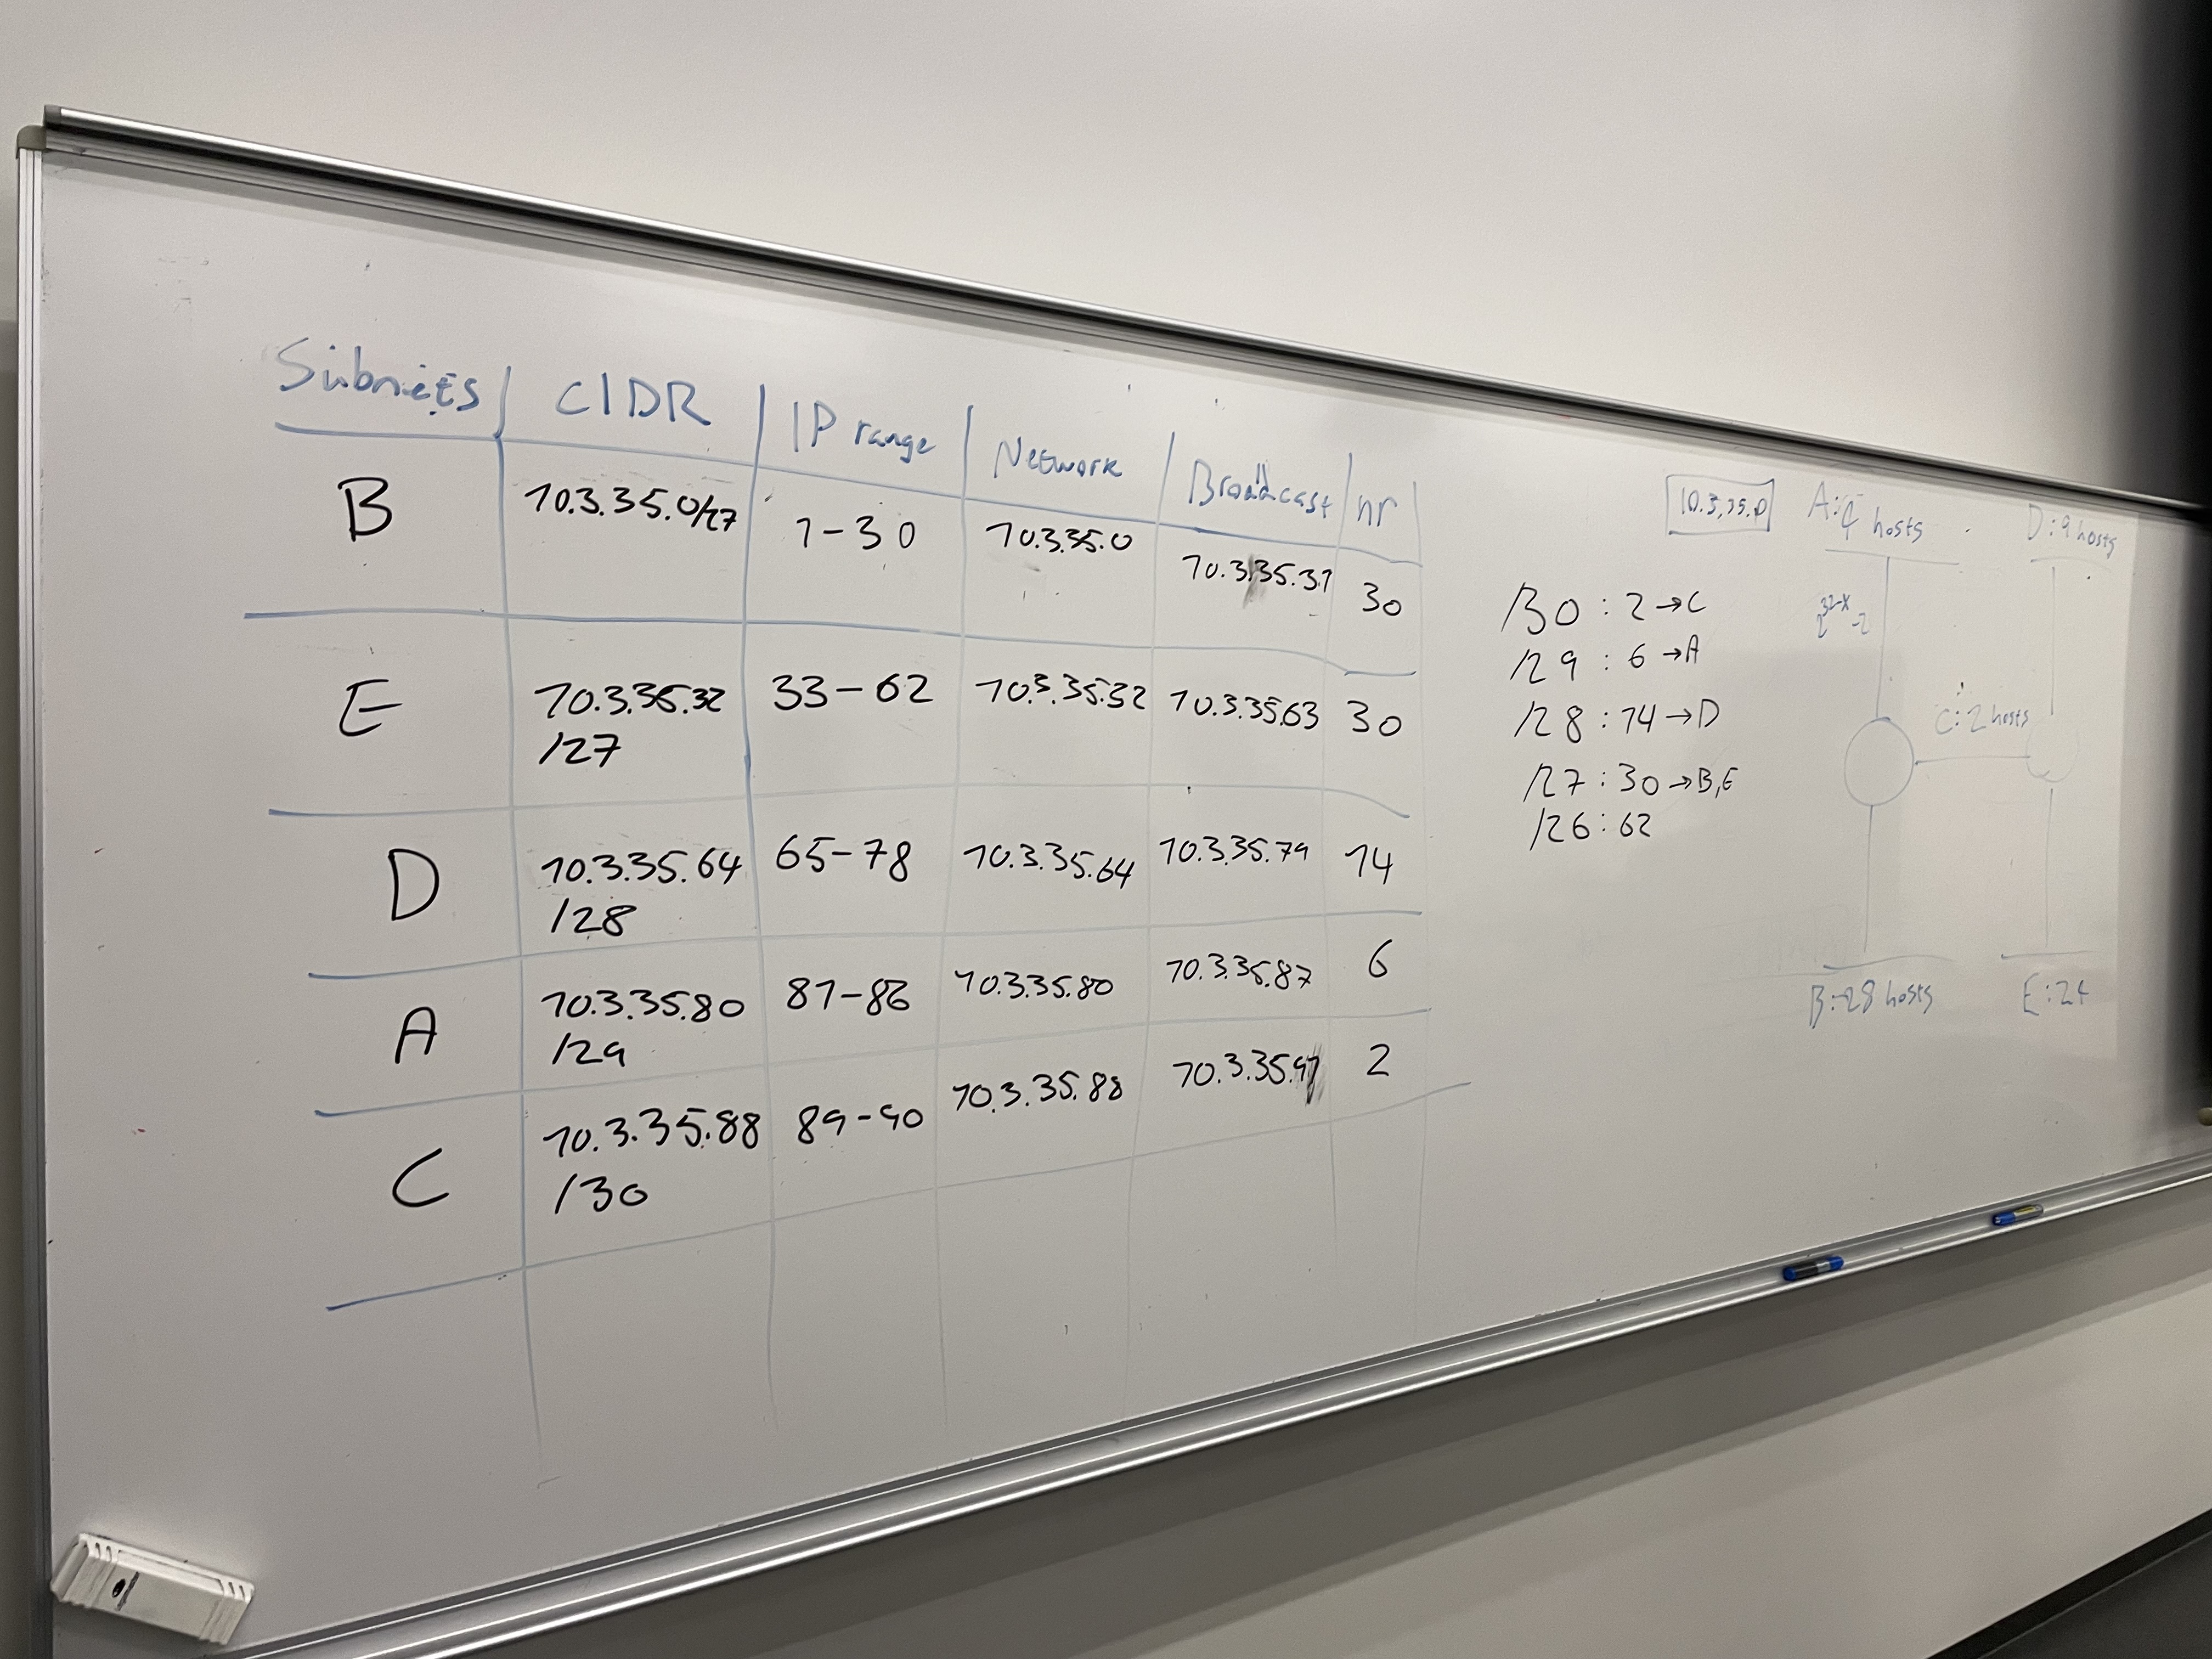 Subnets CIDR IP range Network Broadcast nr
B 10.3.35.0/27 1-30 10.3.35.0 10.3.35.31 30
E 10.3.35.32 33-62 10.3.35.32 10.3.35.63 30
/27
D 10.3.35.64 65-78 10.3.35.64 10.3.35.79 14
/28
A 10.3.35.80 81-86 10.3.35.80 10.3.35.87 6
/29
C 10.3.35.88 89-90 10.3.35.88 10.3.35.91 2
/30
/30 : 2 →C
/29 : 6 →A
/28 : 14 →D
/27 : 30 →B,E
/26 : 62
10.3.35.0
A:4 hosts
D:9 hosts
2^32-x -2
C:2 hosts
B:28 hosts
E:24